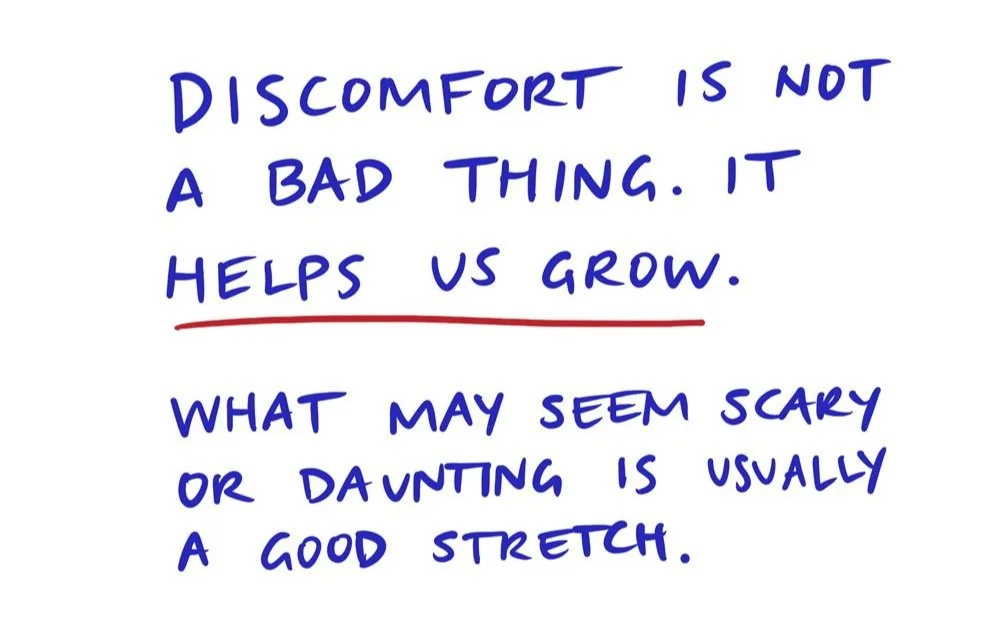 DISCOMFORT IS NOT
A BAD THING. IT
HELPS US GROW.
WHAT MAY SEEM SCARY
OR DAUNTING IS USUALLY
A GOOD STRETCH.